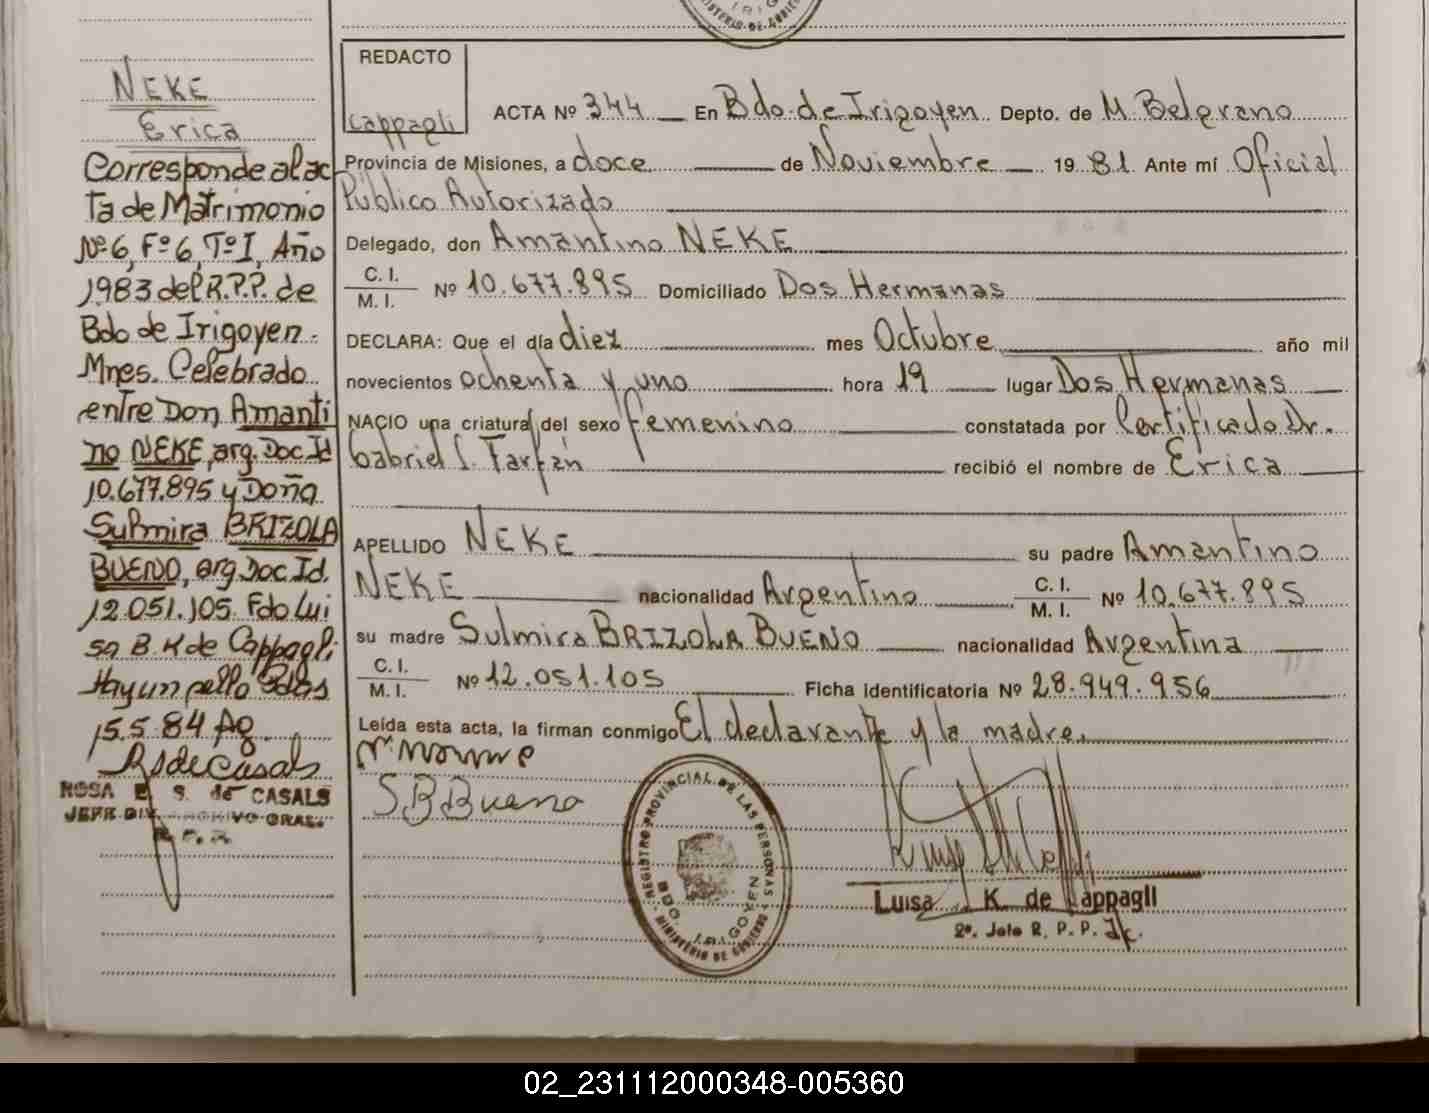 NEKE
Erica
Corresponde al ac
ta de Matrimonio
Nº 6, Fº 6, Tº I, Año
1983 del R.P.P. de
Bdo de Irigoyen.
Mnes. Celebrado
entre Don Amanti
no NEKE, arg. Doc Id
10.677.895 y Doña
Sulmira BRIZOLA
BUENO, arg. Doc Id.
12.051.105. Fdo Lui
sa B. K de Cappagli
Hay un sello
15.5.84
RSdeCasals
ROSA E. S. de CASALS
JEFE DIV. ARCHIVO GRAL.
R. P. P.
REDACTO
Cappagli
ACTA Nº 344 En Bdo. de Irigoyen Depto. de M. Belgrano
Provincia de Misiones, a doce de Noviembre 19 81 Ante mí Oficial
Público Autorizado
Delegado, don Amantino NEKE
C. I.
M. I. Nº 10.677.895 Domiciliado Dos Hermanas
DECLARA: Que el día diez mes Octubre año mil
novecientos ochenta y uno hora 19 lugar Dos Hermanas
NACIO una criatura del sexo femenino constatada por Certificado Dr.
Gabriel S. Farfán recibió el nombre de Erica
APELLIDO NEKE su padre Amantino
NEKE nacionalidad Argentino C. I.
M. I. Nº 10.677.895
su madre Sulmira BRIZOLA BUENO nacionalidad Argentina
C. I.
M. I. Nº 12.051.105 Ficha Identificatoria Nº 28.949.956
Leída esta acta, la firman conmigo El declarante y la madre.
S B Bueno
REGISTRO PROVINCIAL DE LAS PERSONAS
BDO. IRIGOYEN
MINISTERIO DE GOBIERNO
Luisa K. de Cappagli
2º. Jefe R. P. P.
02_231112000348-005360